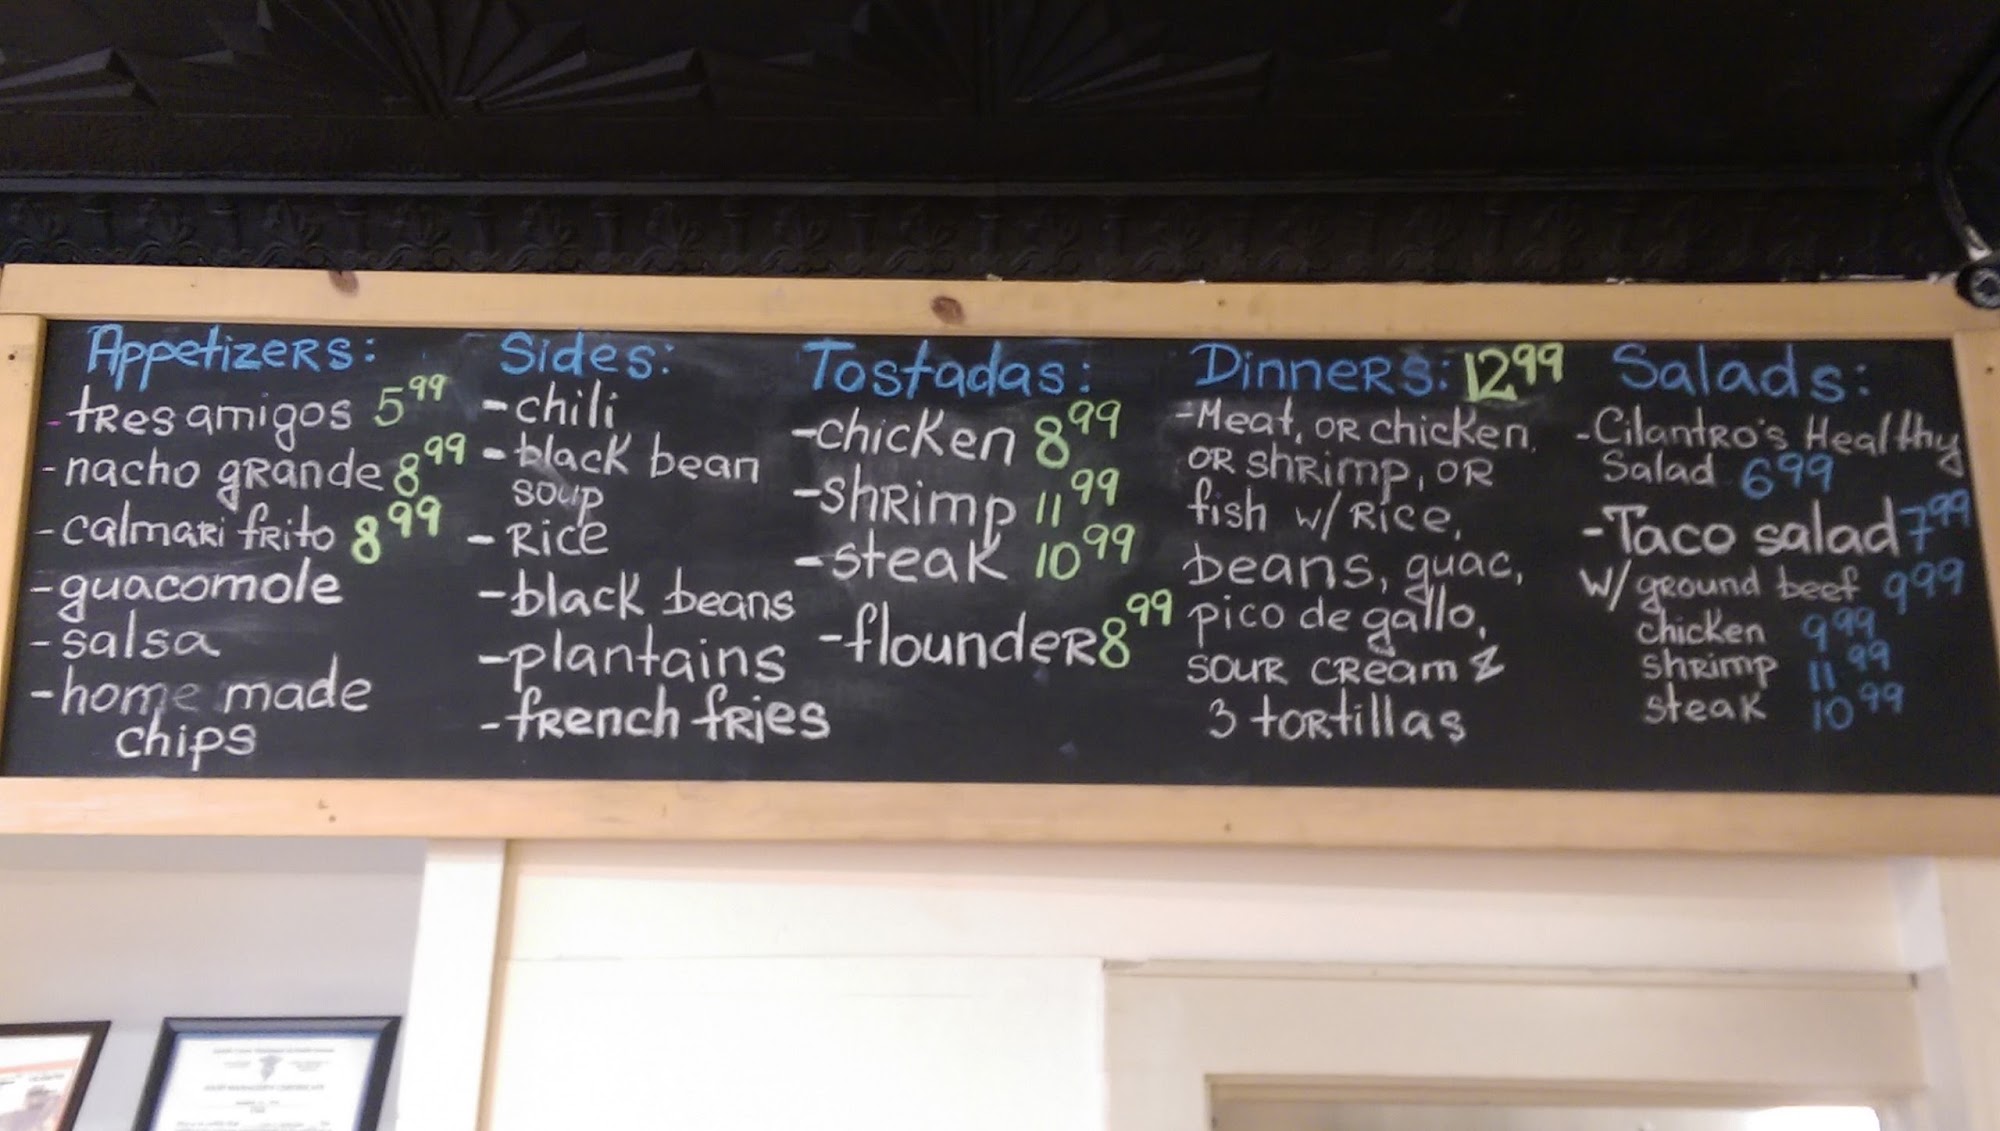 Appetizers:
- tres amigos 5.99
- nacho grande 8.99
- calmari frito 8.99
- guacomole
- salsa
- home made
chips
Sides:
- chili
- black bean
soup
- Rice
- black beans
- plantains
- french fries
Tostadas:
- chicken 8.99
- shrimp 11.99
- steak 10.99
- flounder 8.99
Dinners: 12.99
- Meat, or chicken,
or shrimp, or
fish w/ Rice,
beans, guac,
pico de gallo,
sour cream &
3 tortillas
Salads:
- Cilantro's Healthy
Salad 6.99
- Taco salad 7.99
w/ ground beef 9.99
chicken 9.99
shrimp 11.99
steak 10.99